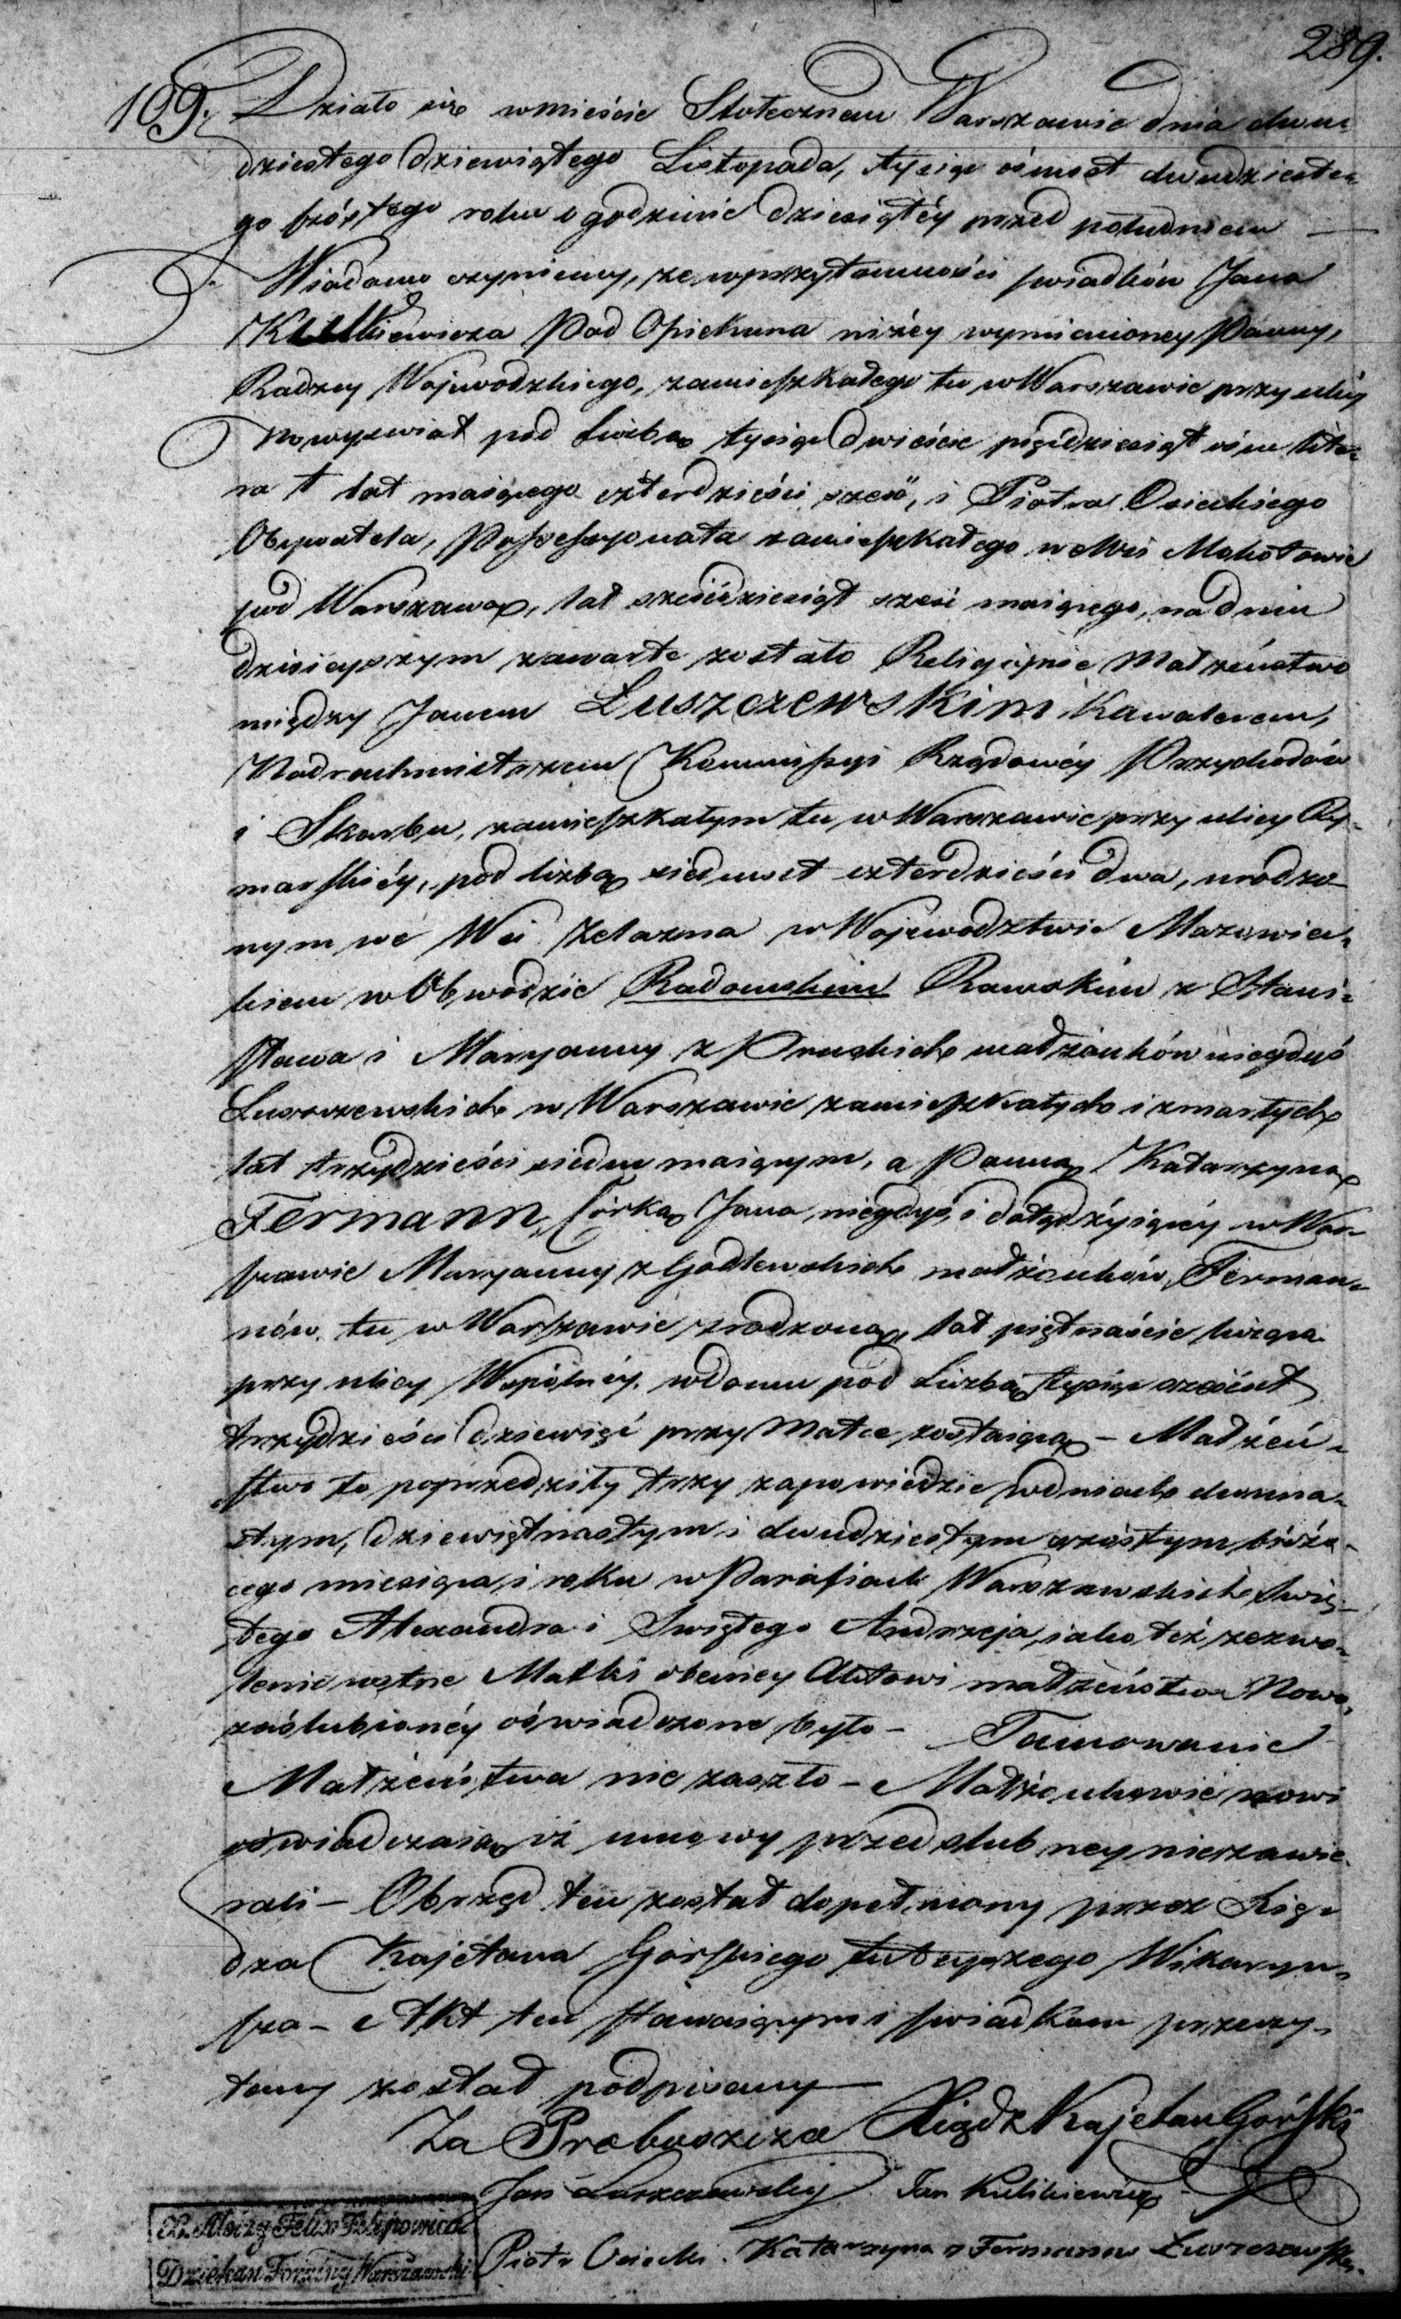 289.
109. Działo się w mieście Stołecznem Warszawie dnia dwu-
dziestego dziewiątego Listopada, tysiąc ośmset dwudzieste-
go szóstego roku o godzinie dziesiątéy przed południem —
Wiadomo czyniemy, że w przytomności świadków Jana
Kulikiewicza Pod Opiekuna niżéy wymienioney Panny,
Radzcy Wojewodzkiego, zamieszkałego tu w Warszawie przy ulicy
Nowyswiat pod liczbą tysiąc dwieście pięćdziesiąt ośm lite-
ra lat maiącego czterdzieści sześć, i Piotra Osieckiego
Obywatela, Possessyonata zamieszkałego we Wsi Mokotowie
pod Warszawą, lat sześćdziesiąt sześć maiącego, na dniu
dzisieyszym zawarte zostało Religijnie Małżeństwo
między Janem Łuszczewskim Kawalerem,
Nadrachmistrzem Kommissyi Rządowéy Przychodów
i Skarbu, zamieszkałym tu w Warszawie przy ulicy Ry-
marskiéy, pod liczbą siedmset czterdzieści dwa, urodzo-
nym we Wsi Żelazna w Województwie Mazowiec-
kiem w Obwodzie Radomskim Rawskim z Stani-
sława i Maryanny z Pruskich małżonków niegdyś
Łuszczewskich w Warszawie zamieszkałych i zmarłych
lat trzydzieści siedm maiącym, a Panną Katarzyną
Fermann, Córką Jana, niegdyś, i dotąd żyiącéy w War-
szawie Maryanny z Godlewskich małżonków Ferman-
nów, tu w Warszawie zrodzoną, lat piętnaście licząca
przy ulicy Wspólnéy, w domu pod Liczbą tysiąc sześćset
trzydzieści dziewięć przy Matce zostaiącą – Małżeń-
stwo to poprzedziły trzy zapowiedzie w dniach dwuna-
stym, dziewiętnastym i dwudziestym szóstym bieżą-
cego miesiąca i roku w Parafiach Warszawskich Swię-
tego Alexandra i Swiętego Andrzeja, iako też zezwo-
lenie ustne Matki obecney Aktowi małżeństwa Nowo-
zaślubionéy oświadczone było – Tamowanie
Małżeństwa nie zaszło – Małżonkowie nowi
oświadczaią iż umowy przedślubney niezawie-
rali – Obrzęd ten został dopełniony przez Xię-
dza Kajetana Górskiego tuteyszego Wikaryu-
sza – Akt ten stawaiącym i świadkom przeczy-
tany został podpisany —
Za Proboszcza Xiądz Kajetan Górski
Jan Łuszczewski Jan Kulikiewicz
Piotr Osiecki. Katarzyna z Fermann Łuszczewska.
X. Aloizy Felix Filipowicz
Dziekan Foralny Warszawski